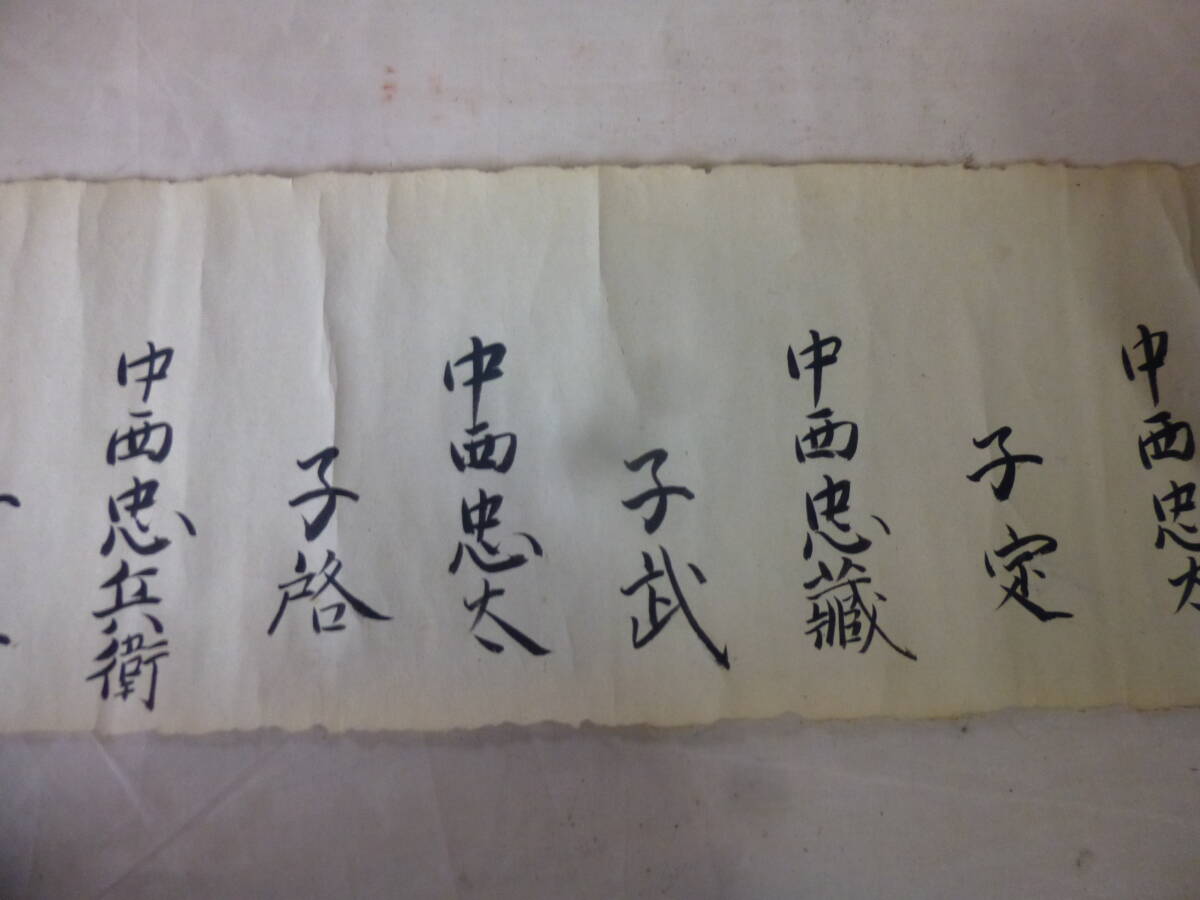 中西忠太
子定
中西忠藏
子武
中西忠太
子啓
中西忠兵衛